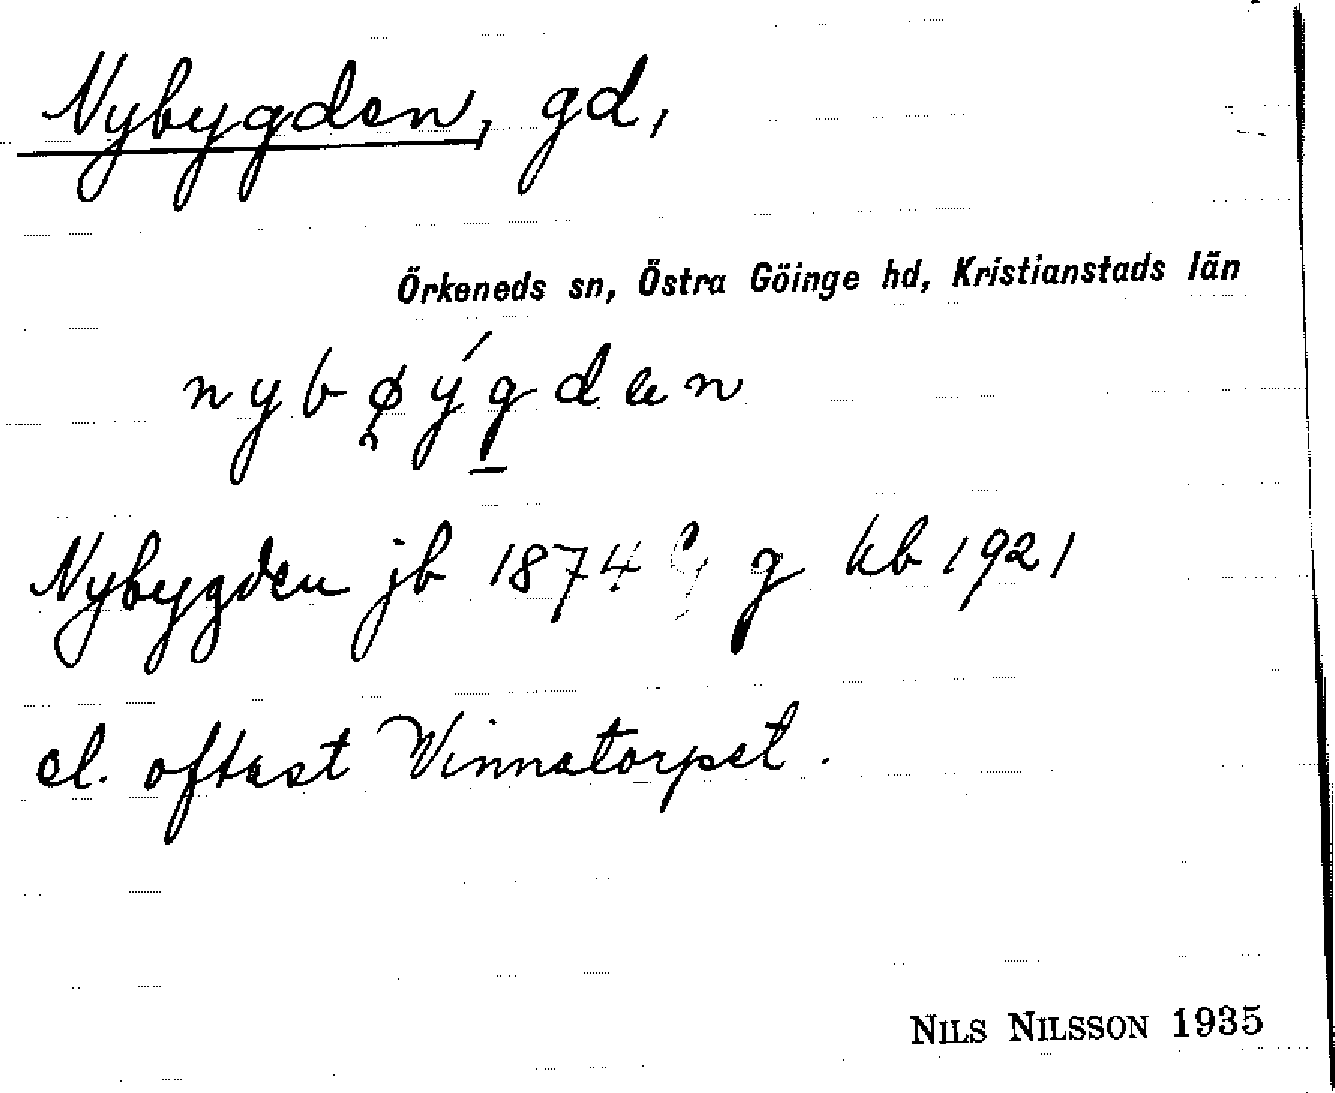 Nybygden, gd,
Örkeneds sn, Östra Göinge hd, Kristianstads län
nybøýgden
Nybygden jb 1874 g kb 1921
el. oftast Vinnatorpet.
NILS NILSSON 1935